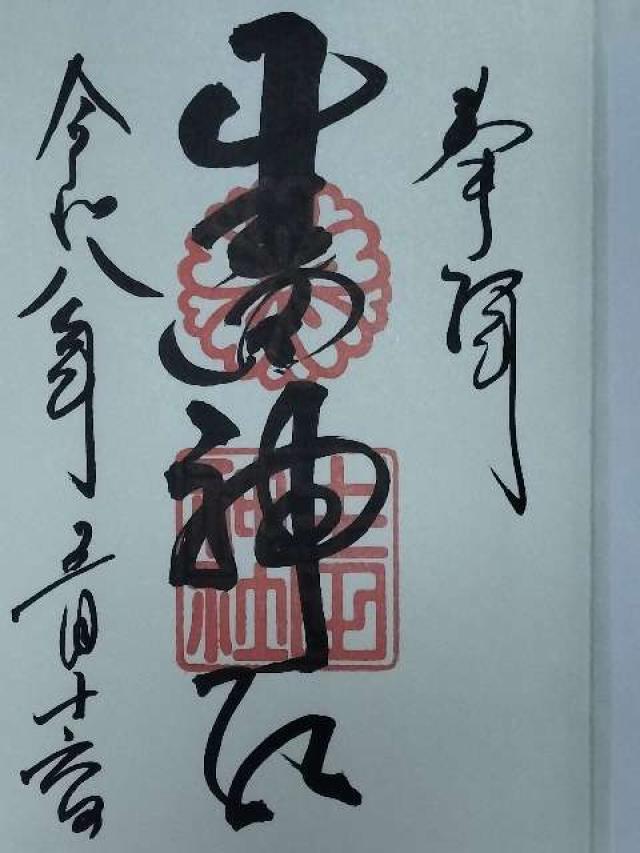 奉拝
神社
令和八年五月十六日